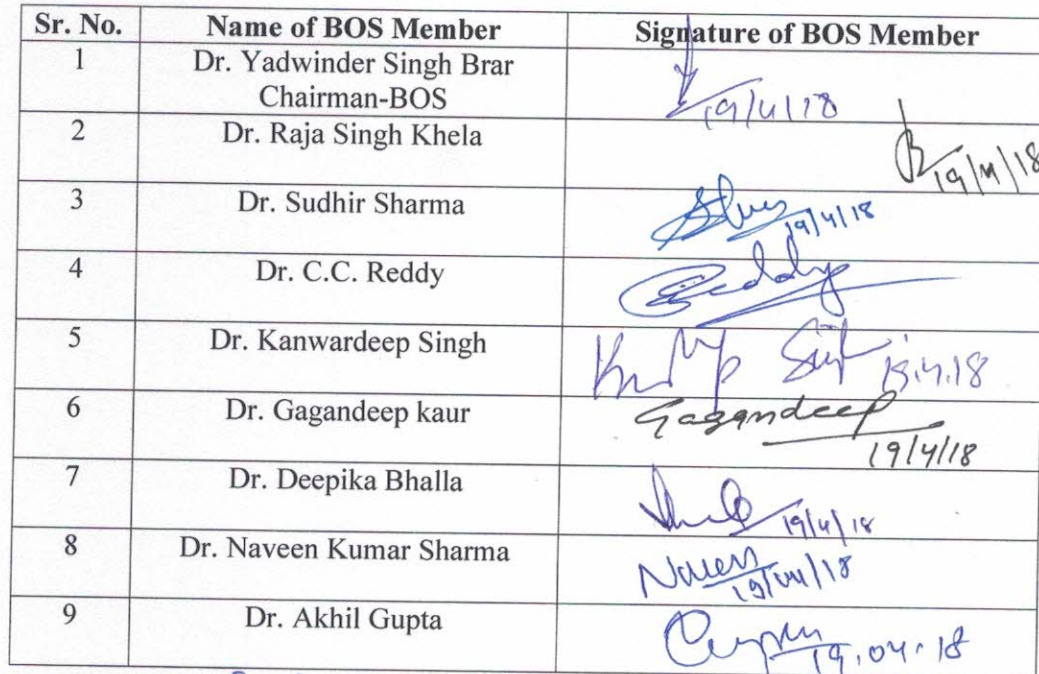 Sr. No. Name of BOS Member Signature of BOS Member
1 Dr. Yadwinder Singh Brar
Chairman-BOS
19/4/18
2 Dr. Raja Singh Khela
19/4/18
3 Dr. Sudhir Sharma
19/4/18
4 Dr. C.C. Reddy CReddy
5 Dr. Kanwardeep Singh
6 Dr. Gagandeep kaur Gagandeep
19/4/18
7 Dr. Deepika Bhalla
19/4/18
8 Dr. Naveen Kumar Sharma Naveen
19/04/18
9 Dr. Akhil Gupta
19.04.18